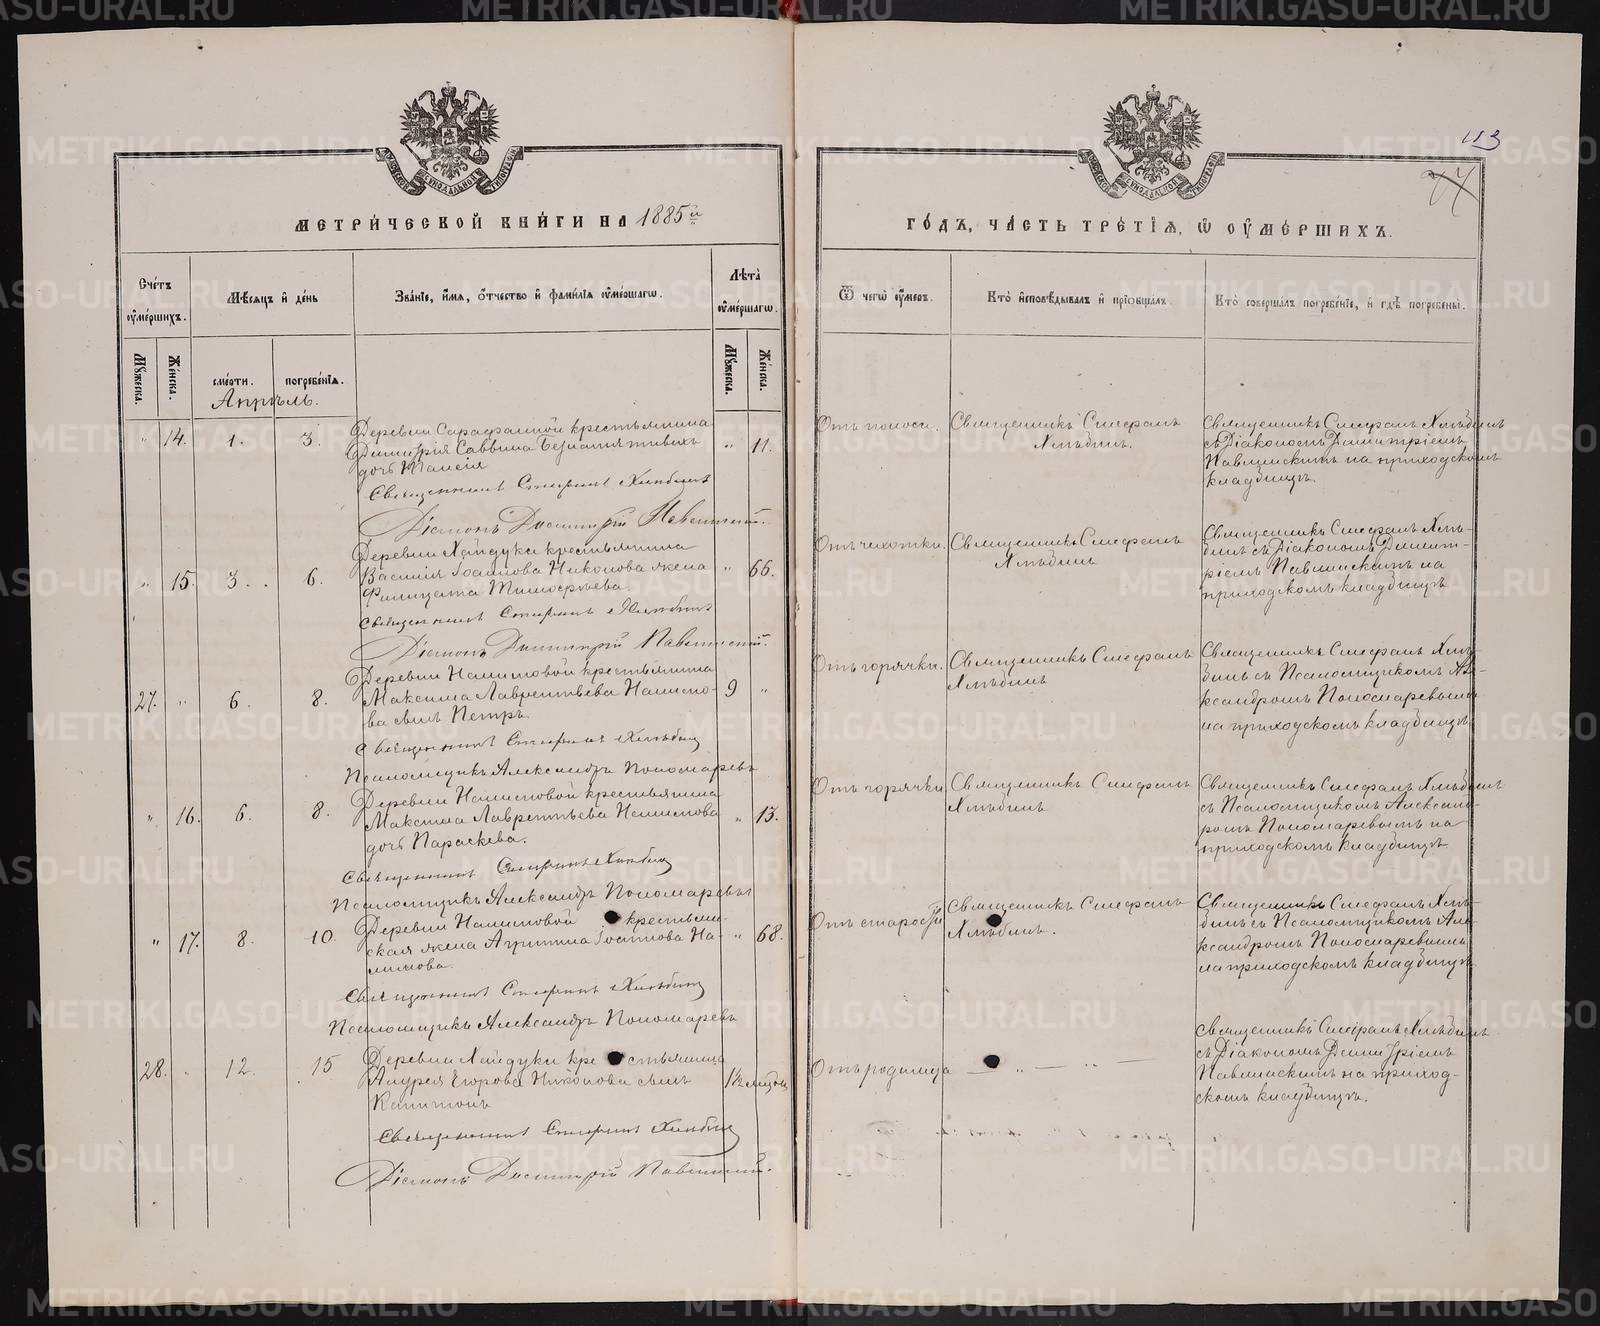 МЕТРИЧЕСКОЙ КНИГИ НА 1885й
ГОДЪ, ЧАСТЬ ТРЕТІЯ, Ѿ ОУМЕРШИХЪ.
113
Счетъ оумершихъ.
Мѣсяцъ и день
Званіе, имя, отчество и фамилія оумершагѡ.
Лѣта оумершагѡ.
Ѿ чегѡ оумеръ.
Кто исповѣдывалъ и пріобщалъ.
Кто совершалъ погребеніе, и гдѣ погребены.
Мужеска.
Женска.
смерти.
погребенія.
Мужеска.
Женска.
Апрѣль.
14. 1. 3.
Деревни Сарафанной крестьянина
Димитрія Саввина
дочь Таисія
11.
Священникъ Стефанъ Хлѣбинъ
Діаконъ Димитрій Павлинскій.
Отъ поноса.
Священникъ Стефанъ
Хлѣбинъ.
Священникъ Стефанъ Хлѣбинъ
съ Діакономъ Димитріемъ
Павлинскимъ на приходскомъ
кладбищѣ.
15. 3. 6.
Деревни Хайдуки крестьянина
Василія Іоаннова Никонова жена
Филицата Тимофѣева.
66.
Священникъ Стефанъ Хлѣбинъ
Діаконъ Димитрій Павлинскій.
Отъ чахотки.
Священникъ Стефанъ
Хлѣбинъ
Священникъ Стефанъ Хлѣ-
бинъ съ Діакономъ Димит-
ріемъ Павлинскимъ на
приходскомъ кладбищѣ
27. 6. 8.
Деревни Налимовой крестьянина
Максима Лаврентьева Налимо-
ва сынъ Петръ.
9
Священникъ Стефанъ Хлѣбинъ
Псаломщикъ Александръ Пономаревъ
Отъ горячки.
Священникъ Стефанъ
Хлѣбинъ
Священникъ Стефанъ Хлѣ-
бинъ съ Псаломщикомъ Але-
ксандромъ Пономаревымъ
на приходскомъ кладбищѣ
16. 6. 8.
Деревни Налимовой крестьянина
Максима Лаврентьева Налимова
дочь Параскева.
13.
Священникъ Стефанъ Хлѣбинъ
Псаломщикъ Александръ Пономаревъ
Отъ горячки
Священникъ Стефанъ
Хлѣбинъ
Священникъ Стефанъ Хлѣбинъ
съ Псаломщикомъ Александ-
ромъ Пономаревымъ на
приходскомъ кладбищѣ
17. 8. 10.
Деревни Налимовой крестьян-
ская жена Агрипина Іоаннова На-
лимова.
68.
Священникъ Стефанъ Хлѣбинъ
Псаломщикъ Александръ Пономаревъ
Отъ старости
Священникъ Стефанъ
Хлѣбинъ.
Священникъ Стефанъ Хлѣ-
бинъ съ Псаломщикомъ Але-
ксандромъ Пономаревымъ
на приходскомъ кладбищѣ
28. 12. 15
Деревни Хайдуки крестьянина
Андрея Егорова Никонова сынъ
Капитонъ
1½ мѣсяц
Священникъ Стефанъ Хлѣбинъ
Діаконъ Димитрій Павлинскій.
Отъ родимца
Священникъ Стефанъ Хлѣбинъ
съ Діакономъ Димитріемъ
Павлинскимъ на приход-
скомъ кладбищѣ.
METRIKI.GASO-URAL.RU